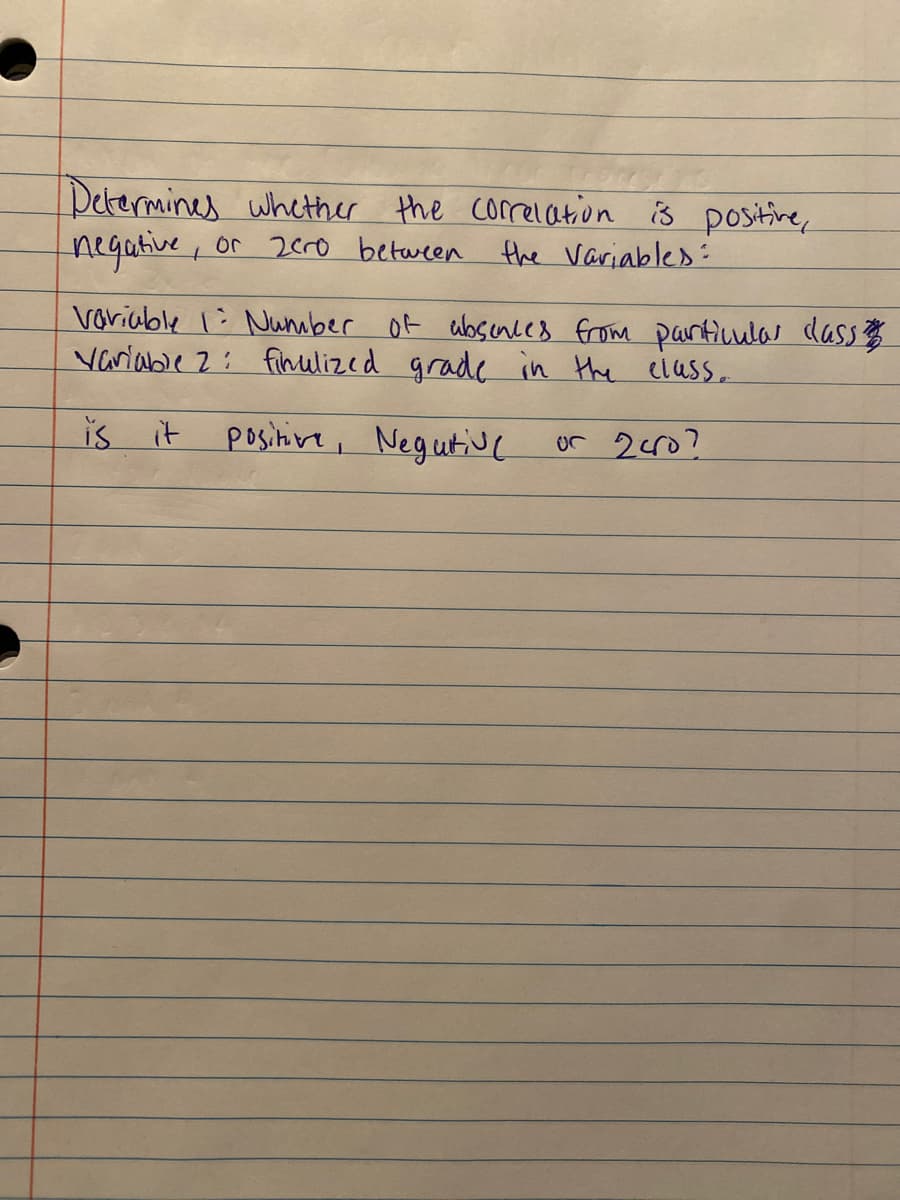 Determines whether the correlation is positive,
negative, or zero between the variables:
variable 1: Number of absences from particular class
variable 2: finalized grade in the class.
is it positive, Negative or zero?